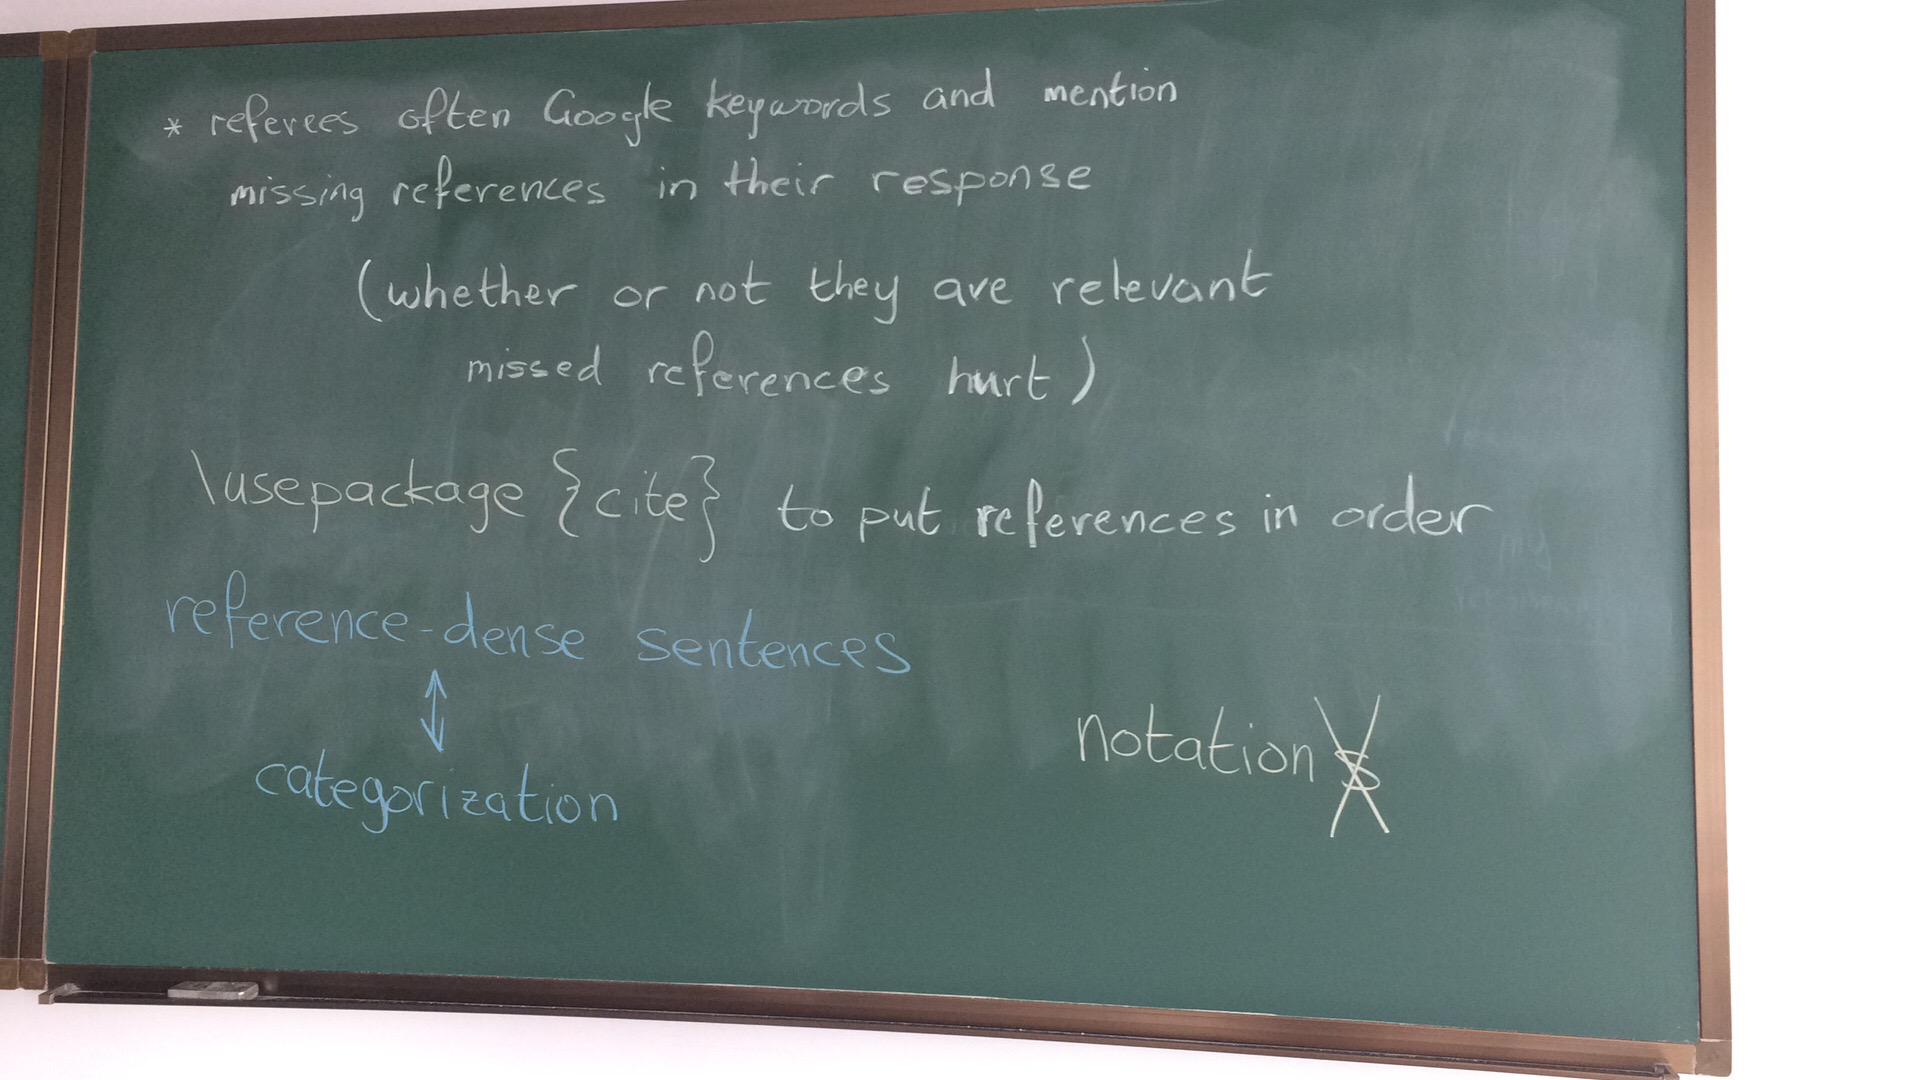 * referees often Google keywords and mention
missing references in their response
(whether or not they are relevant
missed references hurt)
\usepackage {cite} to put references in order
reference-dense sentences
↕
categorization
notations